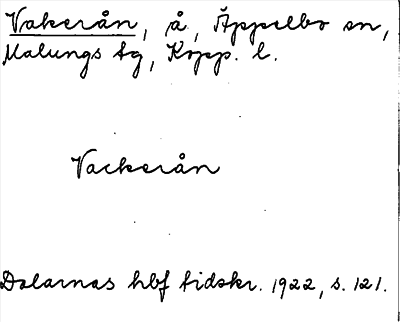 Vakerån, å, Äppelbo sn,
Malungs tg, Kopp. l.
Vackerån
Dalarnas hbf tidskr. 1922, s. 121.